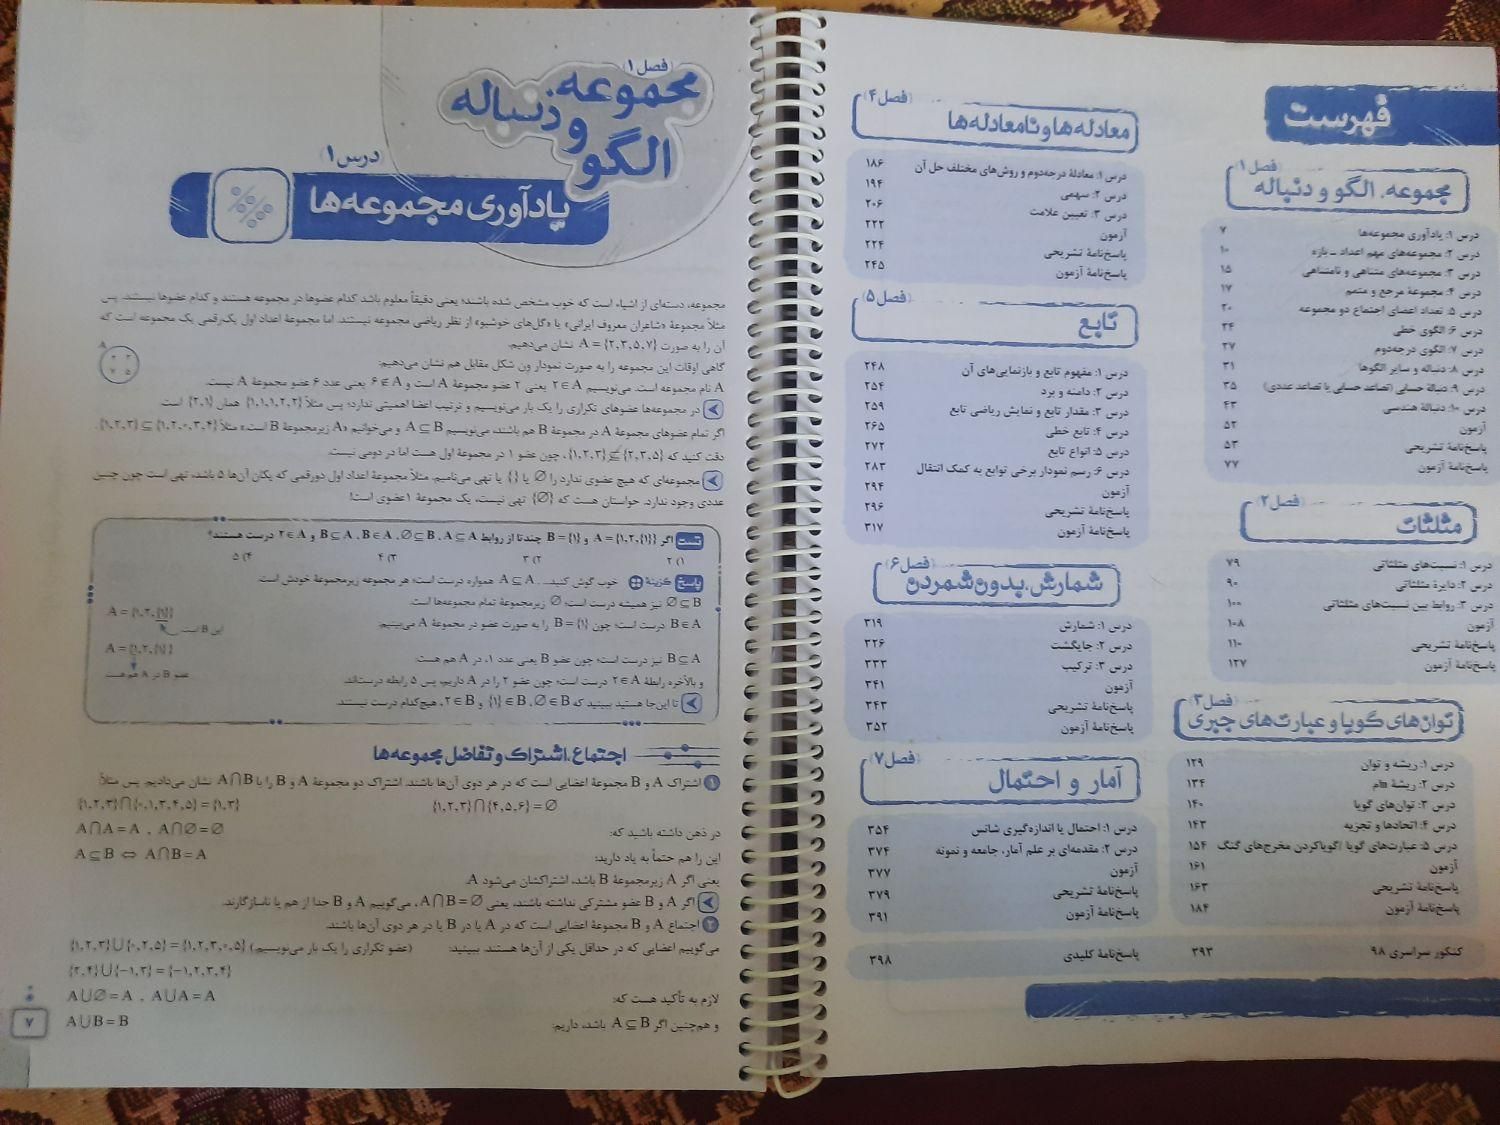 فهرست
فصل ۱
مجموعه، الگو و دنباله
درس ۱: یادآوری مجموعه‌ها ۷
درس ۲: مجموعه‌های مهم اعداد ـ بازه ۱۰
درس ۳: مجموعه‌های متناهی و نامتناهی ۱۵
درس ۴: مجموعهٔ مرجع و متمم ۱۷
درس ۵: تعداد اعضای اجتماع دو مجموعه ۲۰
درس ۶: الگوی خطی ۲۴
درس ۷: الگوی درجه‌دوم ۲۷
درس ۸: دنباله و سایر الگوها ۳۱
درس ۹: دنبالهٔ حسابی (تصاعد حسابی یا تصاعد عددی) ۳۵
درس ۱۰: دنبالهٔ هندسی ۴۳
آزمون ۵۲
پاسخ‌نامهٔ تشریحی ۵۳
پاسخ‌نامهٔ آزمون ۷۷
فصل ۲
مثلثات
درس ۱: نسبت‌های مثلثاتی ۷۹
درس ۲: دایرهٔ مثلثاتی ۹۰
درس ۳: روابط بین نسبت‌های مثلثاتی ۱۰۰
آزمون ۱۰۸
پاسخ‌نامهٔ تشریحی ۱۱۰
پاسخ‌نامهٔ آزمون ۱۲۷
فصل ۳
توان‌های گویا و عبارت‌های جبری
درس ۱: ریشه و توان ۱۲۹
درس ۲: ریشهٔ nام ۱۳۴
درس ۳: توان‌های گویا ۱۴۰
درس ۴: اتحادها و تجزیه ۱۴۳
درس ۵: عبارت‌های گویا (گویاکردن مخرج‌های گنگ) ۱۵۴
آزمون ۱۶۱
پاسخ‌نامهٔ تشریحی ۱۶۳
پاسخ‌نامهٔ آزمون ۱۸۴
کنکور سراسری ۹۸ ۳۹۳
فصل ۴
معادله‌ها و نامعادله‌ها
درس ۱: معادلهٔ درجه‌دوم و روش‌های مختلف حل آن ۱۸۶
درس ۲: سهمی ۱۹۴
درس ۳: تعیین علامت ۲۰۶
آزمون ۲۲۲
پاسخ‌نامهٔ تشریحی ۲۲۴
پاسخ‌نامهٔ آزمون ۲۴۵
فصل ۵
تابع
درس ۱: مفهوم تابع و بازنمایی‌های آن ۲۴۸
درس ۲: دامنه و برد ۲۵۴
درس ۳: مقدار تابع و نمایش ریاضی تابع ۲۵۹
درس ۴: تابع خطی ۲۶۵
درس ۵: انواع تابع ۲۷۲
درس ۶: رسم نمودار برخی توابع به کمک انتقال ۲۸۳
آزمون ۲۹۴
پاسخ‌نامهٔ تشریحی ۲۹۶
پاسخ‌نامهٔ آزمون ۳۱۷
فصل ۶
شمارش، بدون شمردن
درس ۱: شمارش ۳۱۹
درس ۲: جایگشت ۳۲۶
درس ۳: ترکیب ۳۳۳
آزمون ۳۴۱
پاسخ‌نامهٔ تشریحی ۳۴۳
پاسخ‌نامهٔ آزمون ۳۵۲
فصل ۷
آمار و احتمال
درس ۱: احتمال یا اندازه‌گیری شانس ۳۵۴
درس ۲: مقدمه‌ای بر علم آمار، جامعه و نمونه ۳۷۴
آزمون ۳۷۷
پاسخ‌نامهٔ تشریحی ۳۷۹
پاسخ‌نامهٔ آزمون ۳۹۱
پاسخ‌نامهٔ کلیدی ۳۹۸
فصل ۱
مجموعه، الگو و دنباله
درس ۱
یادآوری مجموعه‌ها
مجموعه، دسته‌ای از اشیاء است که خوب مشخص شده باشند؛ یعنی دقیقاً معلوم باشد کدام عضوها در مجموعه هستند و کدام عضوها نیستند. پس
مثلاً مجموعهٔ «شاعران معروف ایرانی» یا «گل‌های خوشبو» از نظر ریاضی مجموعه نیستند. اما مجموعهٔ اعداد اول یک‌رقمی یک مجموعه است که
آن را به صورت A = {۲,۳,۵,۷} نشان می‌دهیم.
گاهی اوقات این مجموعه را به صورت نمودار ون شکل مقابل هم نشان می‌دهیم:
A نام مجموعه است. می‌نویسیم ۲∈A یعنی ۲ عضو مجموعهٔ A است و ۶∉A یعنی عدد ۶ عضو مجموعهٔ A نیست.
در مجموعه‌ها عضوهای تکراری را یک بار می‌نویسیم و ترتیب اعضا اهمیتی ندارد؛ پس مثلاً {۱,۱,۱,۲,۲} همان {۲,۱} است.
اگر تمام عضوهای مجموعهٔ A در مجموعهٔ B هم باشند، می‌نویسیم A⊆B و می‌خوانیم «A زیرمجموعهٔ B است.» مثلاً {۱,۲,۳}⊆{۱,۲,۰,۳,۴}.
دقت کنید که {۱,۲,۳}⊈{۲,۳,۵}، چون عضو ۱ در مجموعهٔ اول هست اما در دومی نیست.
مجموعه‌ای که هیچ عضوی ندارد را ∅ یا { } یا تهی می‌نامیم. مثلاً مجموعهٔ اعداد اول دورقمی که یکان آن‌ها ۵ باشد، تهی است چون چنین
عددی وجود ندارد. حواستان هست که {∅} تهی نیست، یک مجموعهٔ ۱عضوی است!
تست اگر A = {۱,۲,{۱}} و B = {۱} چندتا از روابط A⊆A، ∅⊆B، B∈A، B⊆A و ۲∈A درست هستند؟
۱) ۲ ۲) ۳ ۳) ۴ ۴) ۵
پاسخ گزینهٔ خوب گوش کنید... . A⊆A همواره درست است؛ هر مجموعه زیرمجموعهٔ خودش است.
∅⊆B نیز همیشه درست است؛ ∅ زیرمجموعهٔ تمام مجموعه‌ها است.
B∈A درست است؛ چون B = {۱} را به صورت عضو در مجموعهٔ A می‌بینیم: A = {۱,۲,{۱}}
این B است
B⊆A نیز درست است؛ چون عضو B یعنی عدد ۱، در A هم هست: A = {۱,۲,{۱}}
عضو B در A هم هست
و بالأخره رابطهٔ ۲∈A درست است؛ چون عضو ۲ را در A داریم، پس ۵ رابطه درست‌اند.
تا این‌جا هستید ببینید که {۱}∈B، ∅∈B و ۲∈B، هیچ‌کدام درست نیستند.
اجتماع، اشتراک و تفاضل مجموعه‌ها
۱ اشتراک A و B مجموعهٔ اعضایی است که در هر دوی آن‌ها باشند. اشتراک دو مجموعهٔ A و B را با A∩B نشان می‌دادیم. پس مثلاً
{۱,۲,۳}∩{۴,۵,۶} = ∅ {۱,۲,۳}∩{۰,۱,۳,۴,۵} = {۱,۳}
در ذهن داشته باشید که: A∩A = A , A∩∅ = ∅
این را هم حتماً به یاد دارید: A⊆B ⇔ A∩B = A
یعنی اگر A زیرمجموعهٔ B باشد، اشتراکشان می‌شود A.
اگر A و B عضو مشترکی نداشته باشند، یعنی A∩B = ∅، می‌گوییم A و B جدا از هم یا ناسازگارند.
۲ اجتماع A و B مجموعهٔ اعضایی است که در A یا در B یا در هر دوی آن‌ها باشند.
می‌گوییم اعضایی که در حداقل یکی از آن‌ها هستند. ببینید: (عضو تکراری را یک بار می‌نویسیم.) {۱,۲,۳}∪{۰,۲,۵} = {۱,۲,۳,۰,۵}
{۲,۴}∪{−۱,۳} = {−۱,۲,۳,۴}
لازم به تأکید هست که: A∪∅ = A , A∪A = A
و هم‌چنین اگر A⊆B باشد، داریم: A∪B = B
۷